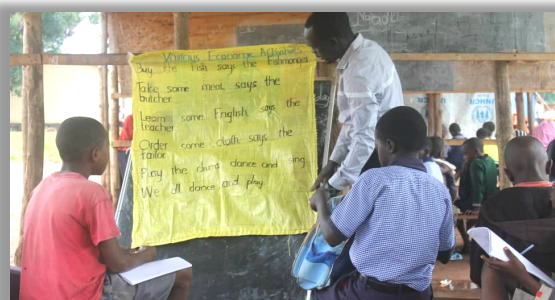 Various Economic Activities
Buy the fish says the fishmonger
Take some meat says the
butcher
Learn some English says the
teacher
Order some cloth says the
tailor
Play the drums dance and sing
We all dance and play
UNHCR